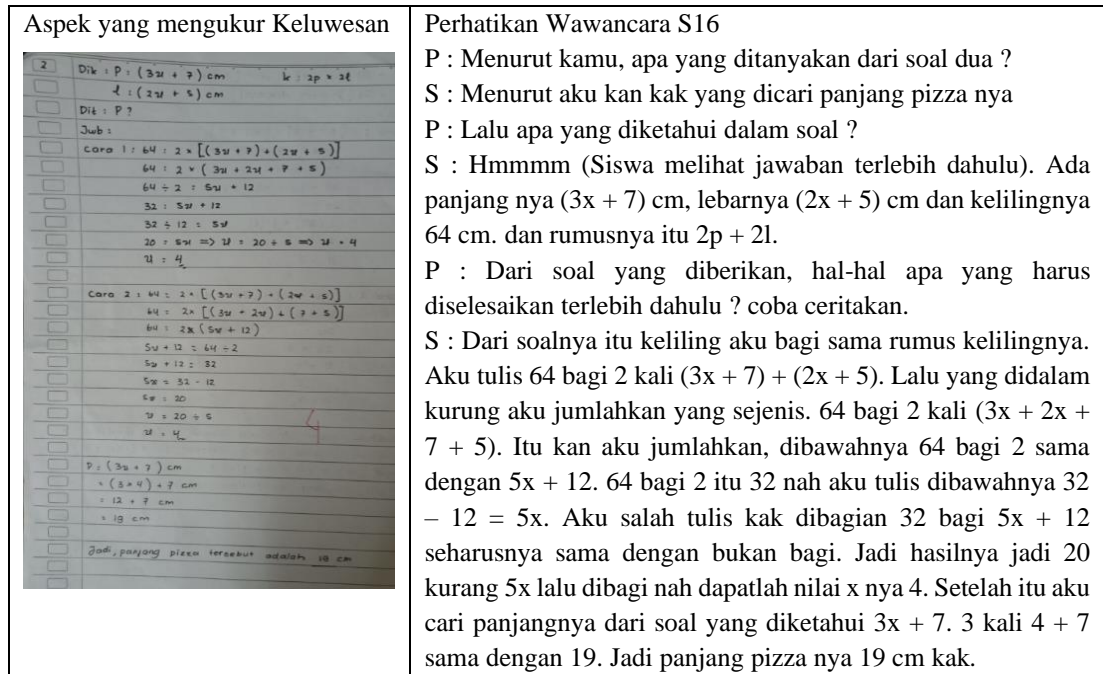 Aspek yang mengukur Keluwesan
2
Dik : P : (3x + 7) cm k : 2p × 2l
l : (2x + 5) cm
Dit : P ?
Jwb :
Cara 1 : 64 : 2 × [(3x + 7) + (2x + 5)]
64 : 2 × (3x + 2x + 7 + 5)
64 ÷ 2 = 5x + 12
32 : 5x + 12
32 ÷ 12 = 5x
20 = 5x => x = 20 ÷ 5 => x = 4
x = 4
Cara 2 : 64 = 2 × [(3x + 7) + (2x + 5)]
64 = 2× [(3x + 2x) + (7 + 5)]
64 : 2× (5x + 12)
5x + 12 = 64 ÷ 2
5x + 12 = 32
5x = 32 - 12
5x = 20
x = 20 ÷ 5
x = 4
4
P : (3x + 7) cm
= (3 × 4) + 7 cm
= 12 + 7 cm
= 19 cm
Jadi, panjang pizza tersebut adalah 19 cm
Perhatikan Wawancara S16
P : Menurut kamu, apa yang ditanyakan dari soal dua ?
S : Menurut aku kan kak yang dicari panjang pizza nya
P : Lalu apa yang diketahui dalam soal ?
S : Hmmmm (Siswa melihat jawaban terlebih dahulu). Ada
panjang nya (3x + 7) cm, lebarnya (2x + 5) cm dan kelilingnya
64 cm. dan rumusnya itu 2p + 2l.
P : Dari soal yang diberikan, hal-hal apa yang harus
diselesaikan terlebih dahulu ? coba ceritakan.
S : Dari soalnya itu keliling aku bagi sama rumus kelilingnya.
Aku tulis 64 bagi 2 kali (3x + 7) + (2x + 5). Lalu yang didalam
kurung aku jumlahkan yang sejenis. 64 bagi 2 kali (3x + 2x +
7 + 5). Itu kan aku jumlahkan, dibawahnya 64 bagi 2 sama
dengan 5x + 12. 64 bagi 2 itu 32 nah aku tulis dibawahnya 32
– 12 = 5x. Aku salah tulis kak dibagian 32 bagi 5x + 12
seharusnya sama dengan bukan bagi. Jadi hasilnya jadi 20
kurang 5x lalu dibagi nah dapatlah nilai x nya 4. Setelah itu aku
cari panjangnya dari soal yang diketahui 3x + 7. 3 kali 4 + 7
sama dengan 19. Jadi panjang pizza nya 19 cm kak.